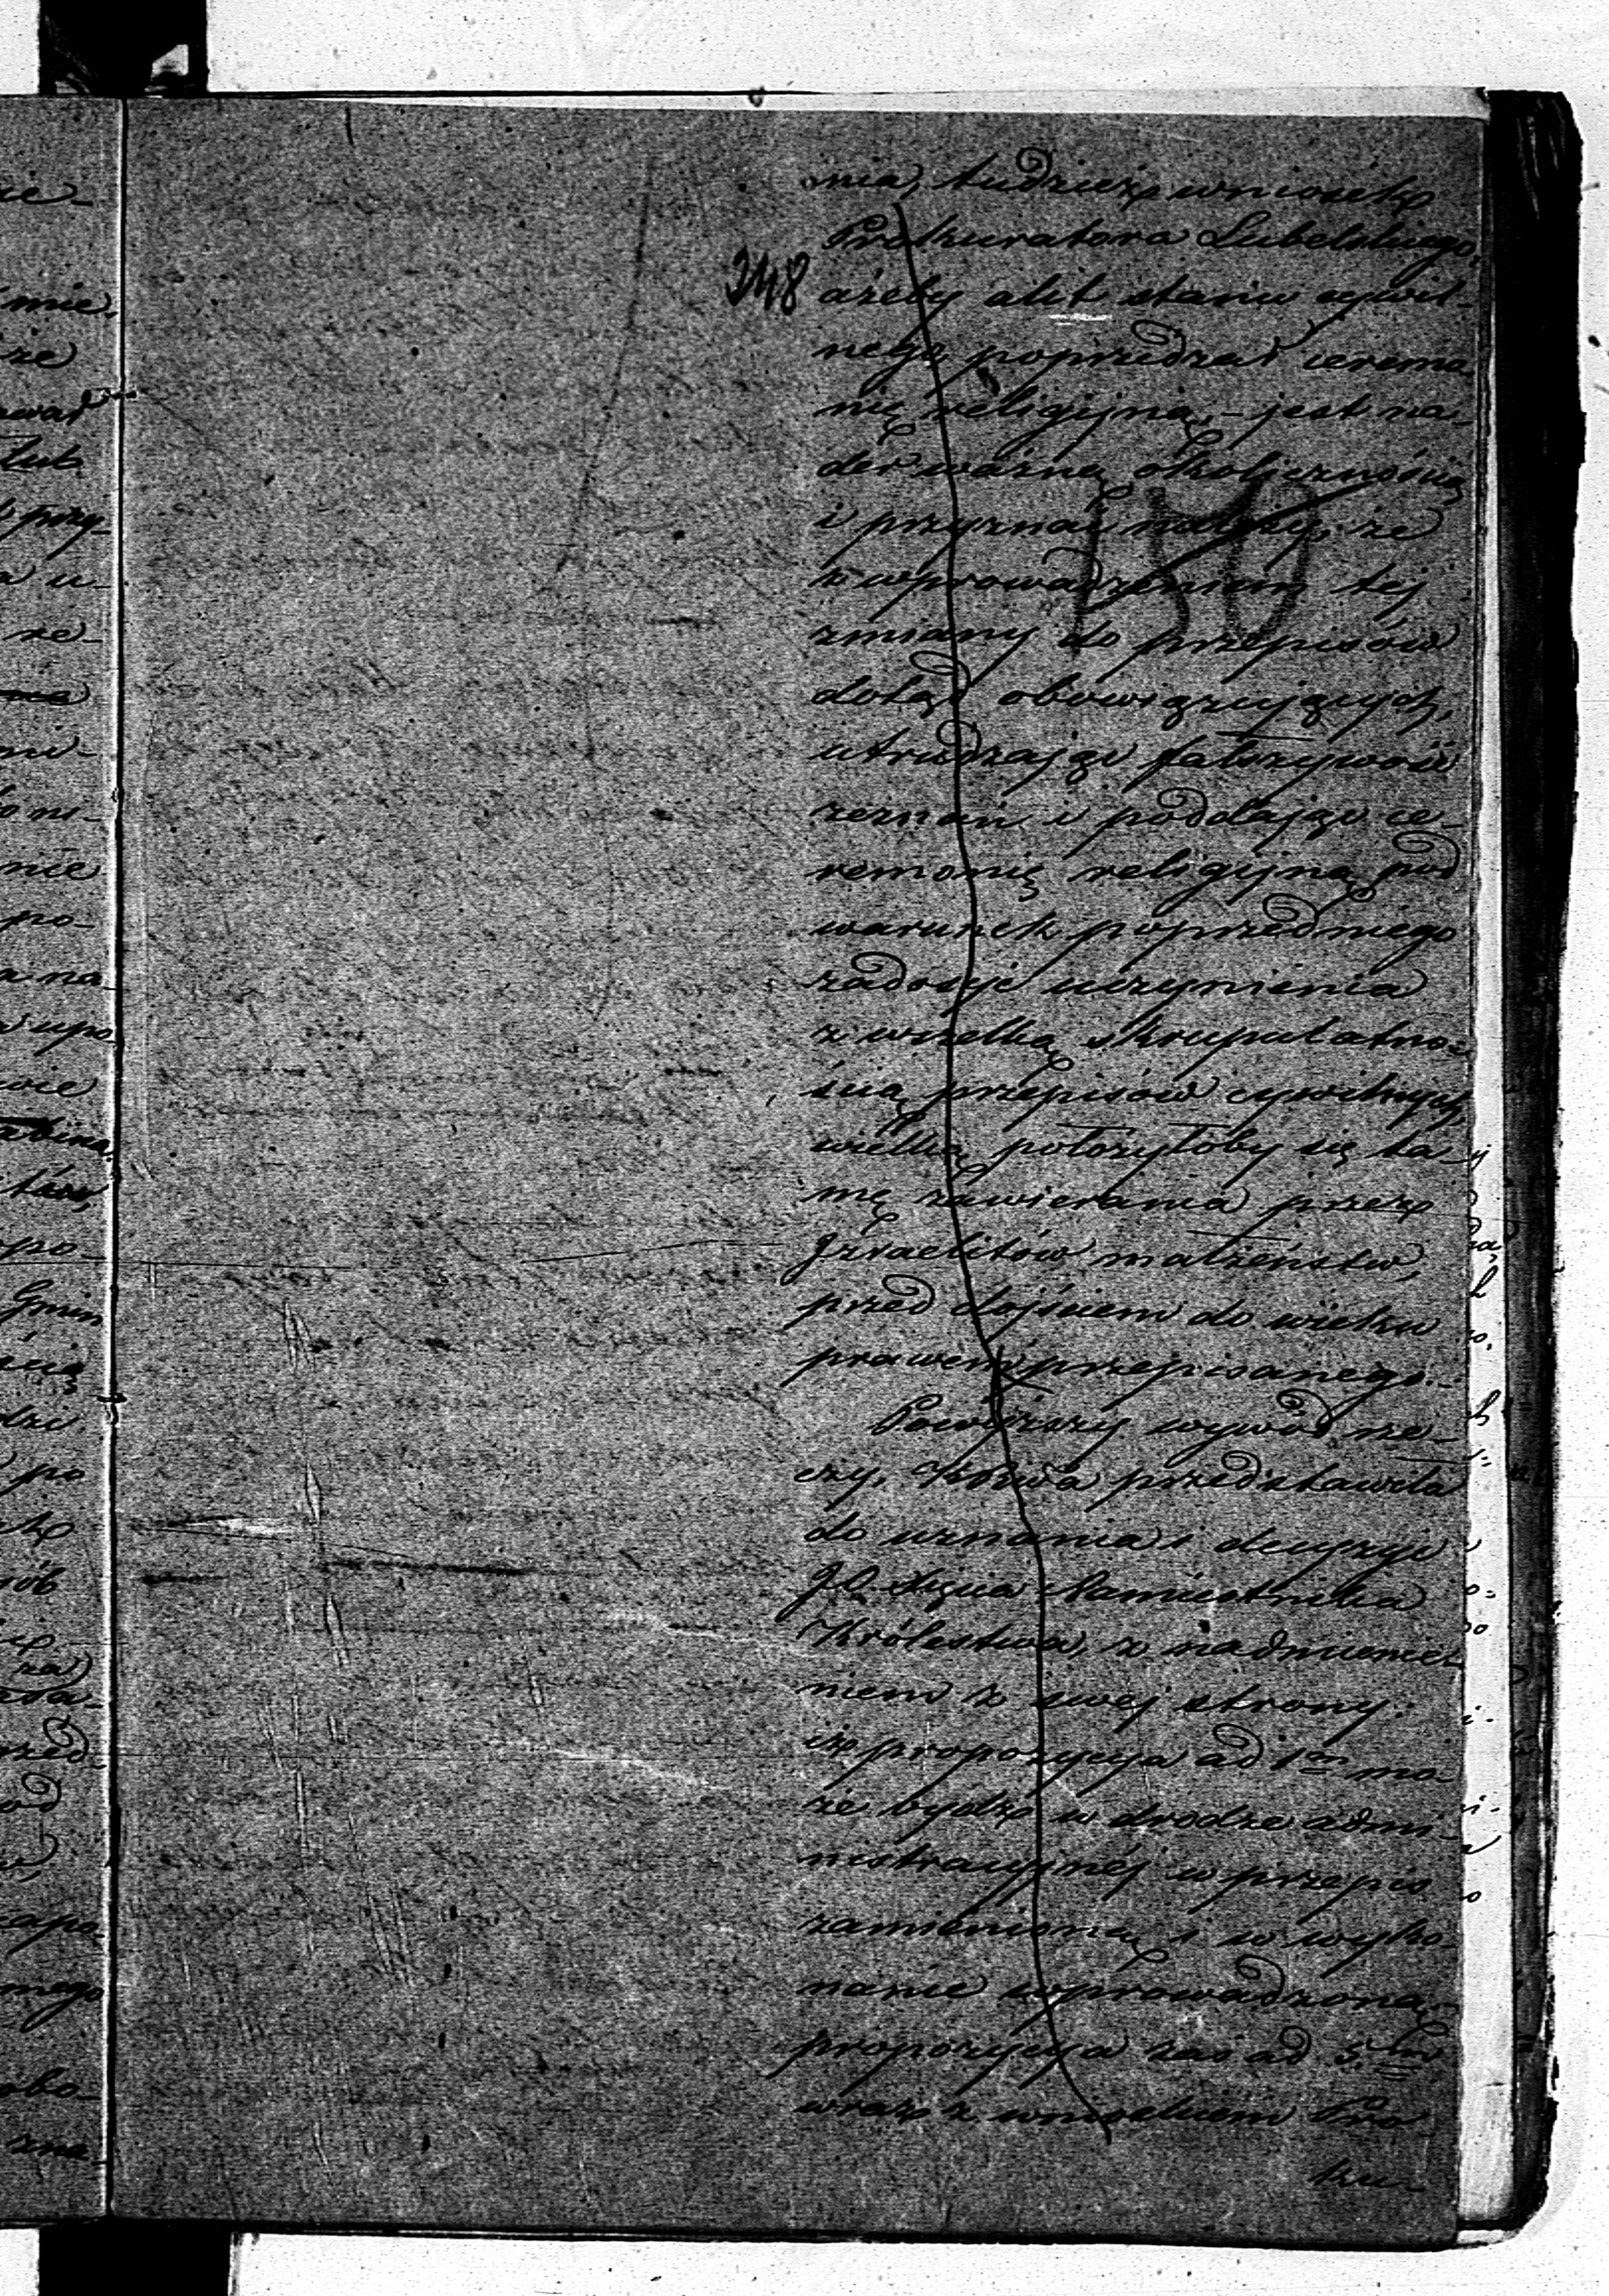 nia, tudzież wniosek
Prokuratora Lubelskiego,
248
ażeby akt stanu cywil-
nego poprzedzał ceremo-
nię religijną, - jest na-
der ważną okolicznością
i przyznać należy, że
150
z wprowadzeniem tej
zmiany do przepisów
dotąd obowiązujących,
utrudzając fałszywość
zeznań i poddając ce-
remonią religijną pod
warunek poprzedniego
zadosyć uczynienia
z wszelką skrupulatno-
ścią przepisów cywilnych,
wielką położyłoby się ta-
mę zawierania przez
Izraelitów małżeństw,
przed dojściem do wieku
prawem przepisanego.-
Powyższy wywód rze-
czy, przedstawiła
do uznania i decyzyi
J.O. Xięcia Namiestnika
Królestwa, z nadmienie-
niem z swej strony:
iż propozycya ad 1m mo-
że bydź w drodze admi-
nistracyjnéj w przepis
zamienioną i w wyko-
nanie wprowadzoną,
propozycya zaś ad
wraz z wnioskiem Pro-
ku-